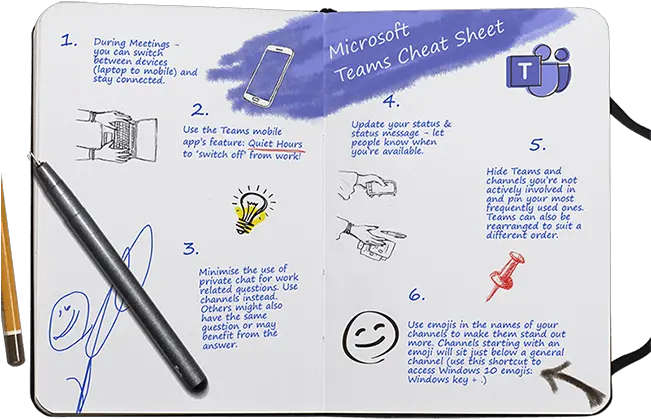 Microsoft
Teams Cheat Sheet
T
1.
During Meetings -
you can switch
between devices
(laptop to mobile) and
stay connected.
2.
Use the Teams mobile
app's feature: Quiet Hours
to 'switch off' from work!
3.
Minimise the use of
private chat for work
related questions. Use
channels instead.
Others might also
have the same
question or may
benefit from the
answer.
4.
Update your status &
status message - let
people know when
you're available.
5.
Hide Teams and
channels you're not
actively involved in
and pin your most
frequently used ones.
Teams can also be
rearranged to suit a
different order.
6.
Use emojis in the names of your
channels to make them stand out
more. Channels starting with an
emoji will sit just below a general
channel (use this shortcut to
access Windows 10 emojis:
Windows key + .)